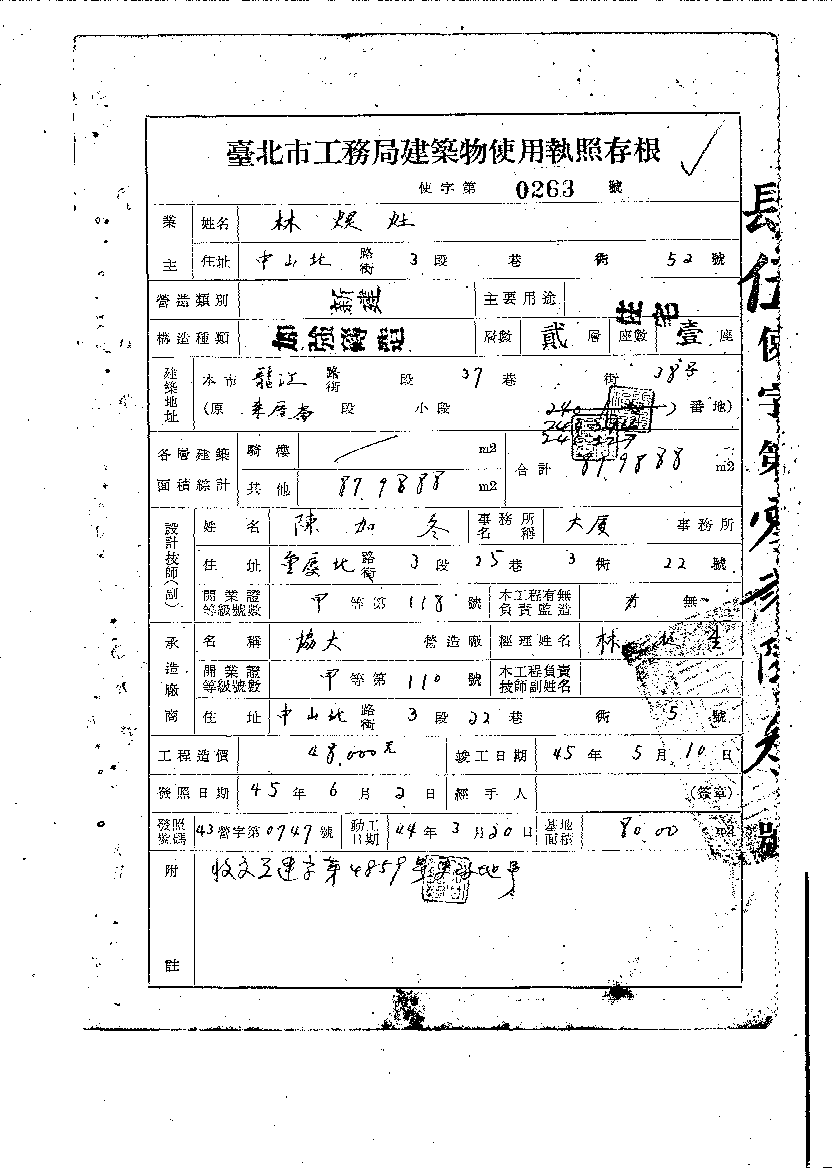 臺北市工務局建築物使用執照存根
使字第 0263 號
業主 姓名 林煥灶
住址 中山北 路街 3段 巷 街 52號
營造類別 新建 主要用途 住宅
構造種類 加強磚造 層數 貳層 座數 壹座
建築地址 本市 龍江 路街 段 37巷 街 38號
(原 段 小段 番地)
各層建築面積綜計 騎樓 m2 合計 87.9888 m2
其他 87.9888 m2
設計技師(副) 姓名 陳加冬 事務所名稱 大廈 事務所
住址 重慶北 路街 3段 25巷 3街 22號
開業證等級號數 甲等第118號 本工程有無負責監造 無
承造廠商 名稱 協大 營造廠 經理姓名 林
開業證等級號數 甲等第110號 本工程負責技師副姓名
住址 中山北 路街 3段 22巷 街 5號
工程造價 48,000元 竣工日期 45年5月10日
發照日期 45年6月2日 經手人 (簽章)
發照號碼 43營字第0747號 動工日期 44年3月20日 基地面積 80.00 m2
附註 收文工建字第4859號
使字第零貳陸參號